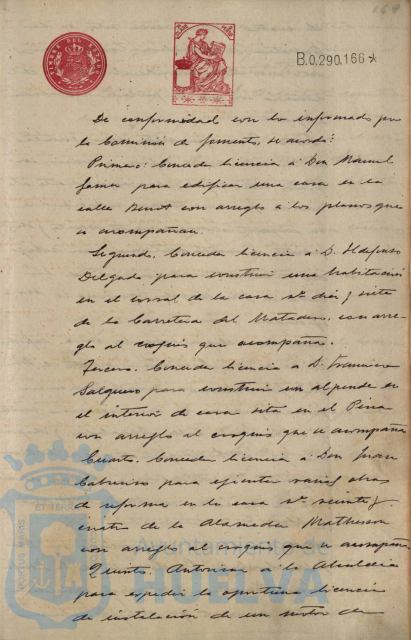 169
TIMBRE DEL ESTADO
B.0.290.166*
De conformidad con lo informado por
la Comisión de fomento, se acordó:
Primero: Conceder licencia á Don Manuel
para edificar una casa en la
calle con arreglo á los planos que
se acompañan.
Segundo. Conceder licencia á D. Ildefonso
Delgado para construir una habitación
en el corral de la casa nº diez y siete
de la Carretera del Matadero, con arre-
glo al croquis que acompaña.
Tercero. Conceder licencia á D. Francisco
Salguero para construir un alpende en
el interior de casa sita en el
con arreglo al croquis que se acompaña
Cuarto. Conceder licencia á Don Juan
para ejecutar varias obras
de reforma en la casa nº veinte y
cuatro de la Alameda Matheson
con arreglo al croquis que se acompaña
Quinto. Autorizar á la Alcaldía
para expedir la oportuna licencia
de instalación de un motor de
Ayuntamiento de
HUELVA
PORTUS MARIS